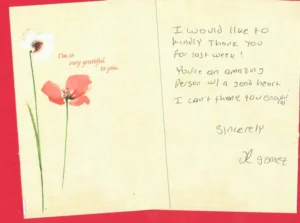 I'm so
very grateful
to you.
I would like to
kindly Thank you
for last week!
You're an amazing
Person w/ a good heart
I can't thank you enough!
Sincerely
gomez